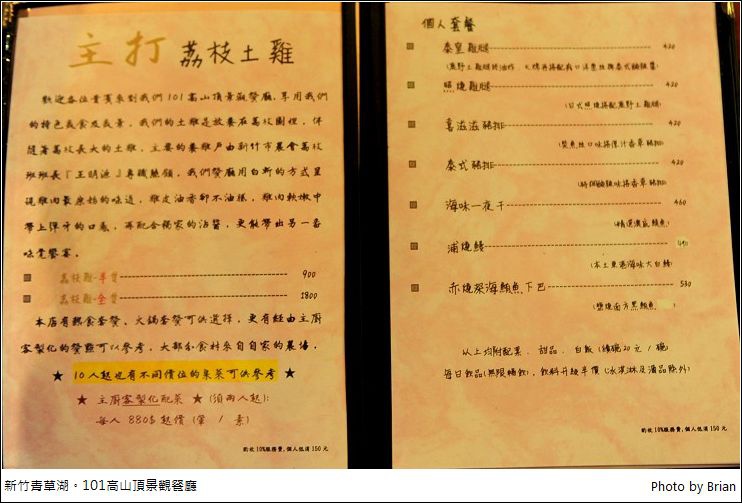 主打 荔枝土雞
歡迎各位貴賓來到我們101高山頂景觀餐廳,享用我們
的特色美食及美景,我們的土雞是放養在荔枝園裡,伴
隨著荔枝長大的土雞,主要的養雞戶由新竹市農會荔枝
班班長『王明源』專職照顧,我們餐廳用白斬的方式呈
現雞肉最原始的味道,雞皮油香卻不油膩,雞肉軟嫩中
帶上彈牙的口感,再配合獨家的沾醬,更能帶出另一番
味覺饗宴。
荔枝雞-半隻 900
荔枝雞-全隻 1800
本店有熱食套餐、火鍋套餐可供選擇,更有經由主廚
客製化的餐點可以參考,大部份食材來自自家的農場。
★ 10人起也有不同價位的桌菜可供參考 ★
★ 主廚客製化配菜 ★ (須兩人起):
每人 880$起價 (葷 / 素)
酌收 10%服務費,個人低消 150 元
個人套餐
泰皇雞腿 420
照燒雞腿 420
(日式照燒搭配熟野土雞腿)
喜滋滋豬排 420
泰式豬排 420
海味一夜干 460
(精選濃底鯖魚)
浦燒鰻 490
(本土東港海味大白鰻)
赤燒深海鮪魚下巴 530
(鹽燒南方黑鮪魚)
以上均附配菜、甜品、白飯(續碗20元/碗)
每日飲品(無限暢飲),飲料升級半價(冰淇淋及酒品除外)
酌收 10%服務費,個人低消 150 元
新竹青草湖。101高山頂景觀餐廳
Photo by Brian